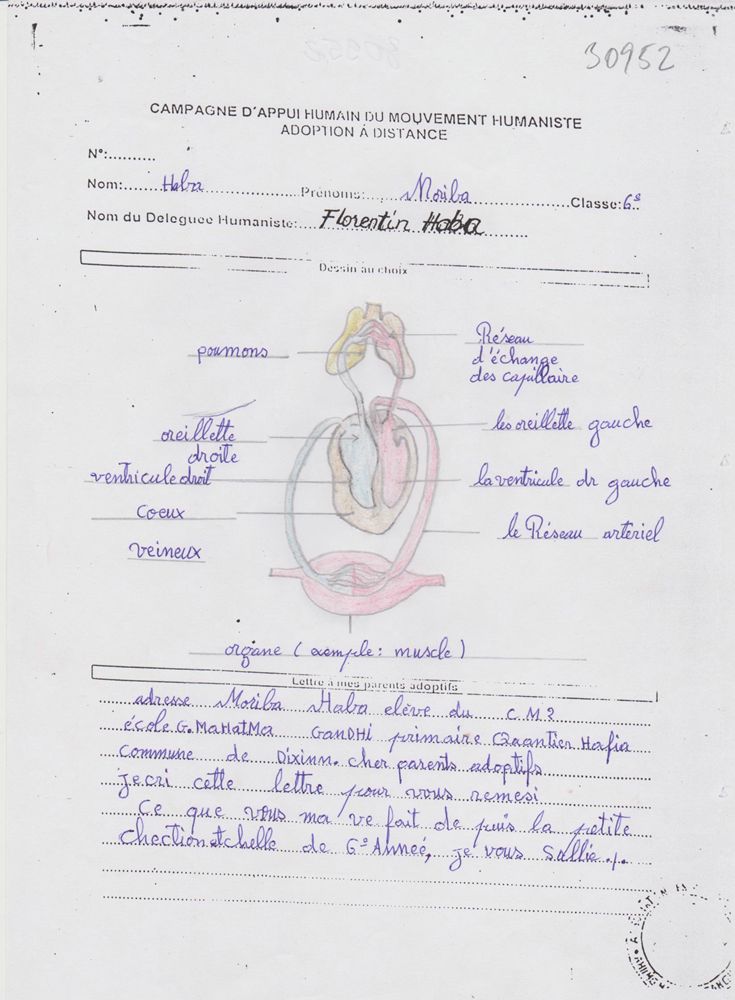 30952
CAMPAGNE D'APPUI HUMAIN DU MOUVEMENT HUMANISTE
ADOPTION Á DISTANCE
N°:..........
Nom:......Haba......................Prénoms:......Moriba....................Classe:6e..
Nom du Deleguee Humaniste:....Florentin Haba..........
Dessin au choix
poumons
Réseau
d'échange
des capillaire
oreillette
droite
les oreillette gauche
ventricule droit
la ventricule dr gauche
Coeux
le Réseau artériel
veineux
organe (exemple: muscle)
Lettre à mes parents adoptifs
adresse Moriba Haba elève du CM2
école G. MaHatMa GanDHi primaire Quantier Hafia
Commune de Dixinn. cher parents adoptifs
Je cri cette lettre pour vous remesi
Ce que vous ma ve fait de puis la petite
de 6e Anneé, je vous Sallie ./.